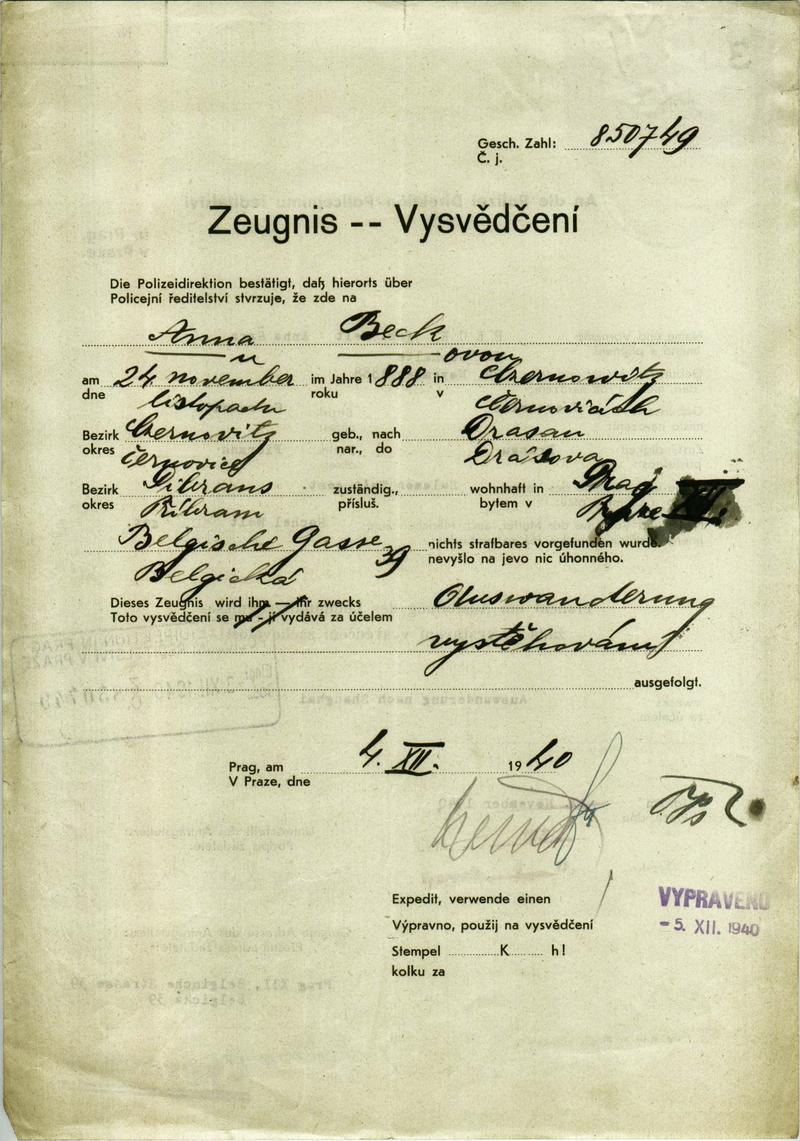 Gesch. Zahl: 850749
Č. j.
Zeugnis -- Vysvědčení
Die Polizeidirektion bestätigt, daß hierorts über
Policejní ředitelství stvrzuje, že zde na
Anna Beck
u ovou
am 24 november im Jahre 1888 in Czernowitz
dne listopadu roku v Černovicích
Bezirk Czernovitz geb., nach Drasan
okres Černovice nar., do Drásova
Bezirk Pibrans zuständig., wohnhaft in Prag XII.
okres Příbram přísluš. bytem v Praze
Belgische Gasse 39 nichts strafbares vorgefunden wurde.
Belgická nevyšlo na jevo nic úhonného.
Dieses Zeugnis wird ihm — ihr zwecks Auswanderung
Toto vysvědčení se mu - jí vydává za účelem
vystěhování
ausgefolgt.
Prag, am 4. XII. 1940
V Praze, dne
Expedit, verwende einen
Výpravno, použij na vysvědčení
Stempel K h!
kolku za
VYPRAVENO
- 5. XII. 1940